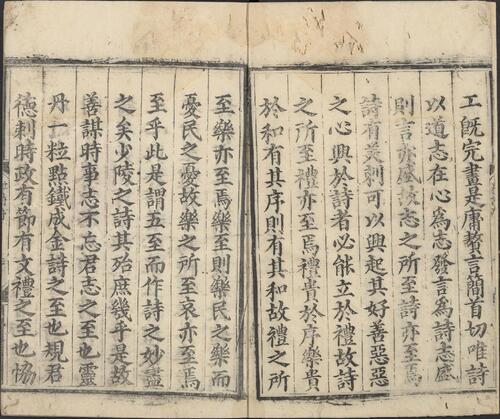 工既完畫是庸贅言簡首切唯詩
以道志在心為志發言為詩志盛
則言亦盛故志之所至詩亦至焉
詩有美刺可以興起其好善惡惡
之心興於詩者必能立於禮故詩
之所至禮亦至焉禮貴於序樂貴
於和有其序則有其和故禮之所
至樂亦至焉樂至則樂民之樂而
憂民之憂故樂之所至哀亦至焉
至乎此是謂五至而作詩之妙盡
之矣少陵之詩其殆庶幾乎是故
善謀時事志不忘君志之至也靈
丹一粒點鐵成金詩之至也規君
德刺時政有節有文禮之至也恊